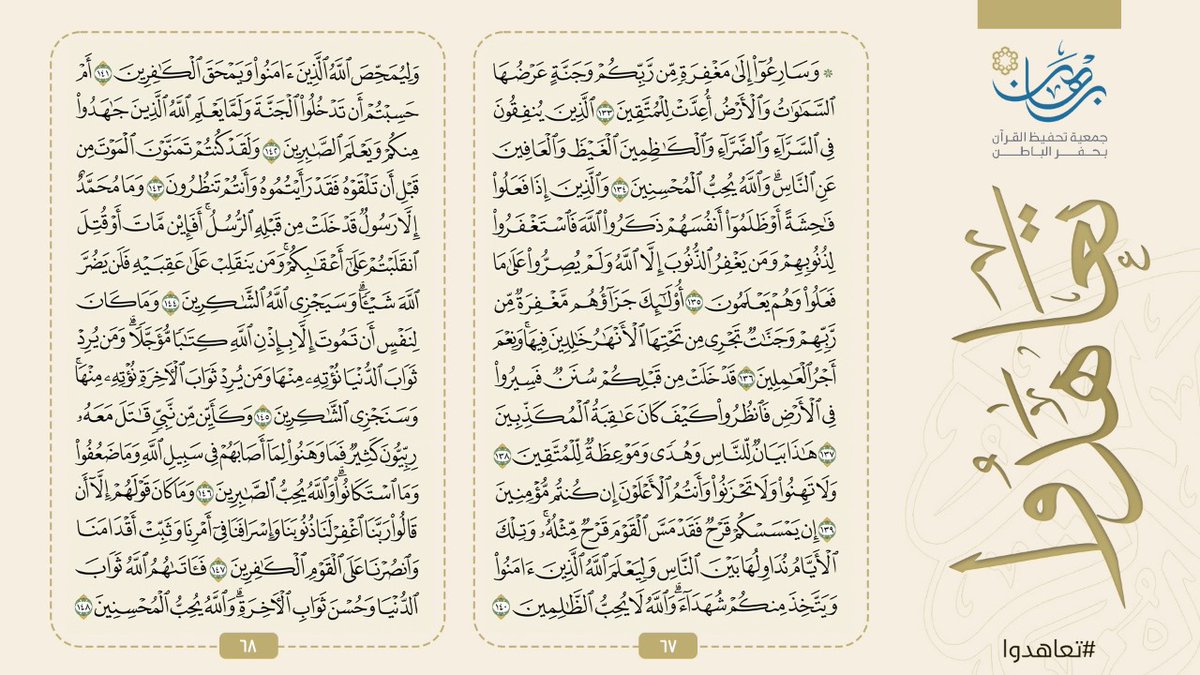 برهان
جمعية تحفيظ القرآن
بحفر الباطن
تعاهدوا
#تعاهدوا
۞ وَسَارِعُوٓاْ إِلَىٰ مَغْفِرَةٖ مِّن رَّبِّكُمْ وَجَنَّةٍ عَرْضُهَا
ٱلسَّمَٰوَٰتُ وَٱلْأَرْضُ أُعِدَّتْ لِلْمُتَّقِينَ ١٣٣ ٱلَّذِينَ يُنفِقُونَ
فِي ٱلسَّرَّآءِ وَٱلضَّرَّآءِ وَٱلْكَٰظِمِينَ ٱلْغَيْظَ وَٱلْعَافِينَ
عَنِ ٱلنَّاسِۗ وَٱللَّهُ يُحِبُّ ٱلْمُحْسِنِينَ ١٣٤ وَٱلَّذِينَ إِذَا فَعَلُواْ
فَٰحِشَةً أَوْ ظَلَمُوٓاْ أَنفُسَهُمْ ذَكَرُواْ ٱللَّهَ فَٱسْتَغْفَرُواْ
لِذُنُوبِهِمْ وَمَن يَغْفِرُ ٱلذُّنُوبَ إِلَّا ٱللَّهُ وَلَمْ يُصِرُّواْ عَلَىٰ مَا
فَعَلُواْ وَهُمْ يَعْلَمُونَ ١٣٥ أُوْلَٰٓئِكَ جَزَآؤُهُم مَّغْفِرَةٞ مِّن
رَّبِّهِمْ وَجَنَّٰتٞ تَجْرِي مِن تَحْتِهَا ٱلْأَنْهَٰرُ خَٰلِدِينَ فِيهَاۚ وَنِعْمَ
أَجْرُ ٱلْعَٰمِلِينَ ١٣٦ قَدْ خَلَتْ مِن قَبْلِكُمْ سُنَنٞ فَسِيرُواْ
فِي ٱلْأَرْضِ فَٱنظُرُواْ كَيْفَ كَانَ عَٰقِبَةُ ٱلْمُكَذِّبِينَ
١٣٧ هَٰذَا بَيَانٞ لِّلنَّاسِ وَهُدٗى وَمَوْعِظَةٞ لِّلْمُتَّقِينَ ١٣٨
وَلَا تَهِنُواْ وَلَا تَحْزَنُواْ وَأَنتُمُ ٱلْأَعْلَوْنَ إِن كُنتُم مُّؤْمِنِينَ
١٣٩ إِن يَمْسَسْكُمْ قَرْحٞ فَقَدْ مَسَّ ٱلْقَوْمَ قَرْحٞ مِّثْلُهُۥۚ وَتِلْكَ
ٱلْأَيَّامُ نُدَاوِلُهَا بَيْنَ ٱلنَّاسِ وَلِيَعْلَمَ ٱللَّهُ ٱلَّذِينَ ءَامَنُواْ
وَيَتَّخِذَ مِنكُمْ شُهَدَآءَۗ وَٱللَّهُ لَا يُحِبُّ ٱلظَّٰلِمِينَ ١٤٠
٦٧
وَلِيُمَحِّصَ ٱللَّهُ ٱلَّذِينَ ءَامَنُواْ وَيَمْحَقَ ٱلْكَٰفِرِينَ ١٤١ أَمْ
حَسِبْتُمْ أَن تَدْخُلُواْ ٱلْجَنَّةَ وَلَمَّا يَعْلَمِ ٱللَّهُ ٱلَّذِينَ جَٰهَدُواْ
مِنكُمْ وَيَعْلَمَ ٱلصَّٰبِرِينَ ١٤٢ وَلَقَدْ كُنتُمْ تَمَنَّوْنَ ٱلْمَوْتَ مِن
قَبْلِ أَن تَلْقَوْهُ فَقَدْ رَأَيْتُمُوهُ وَأَنتُمْ تَنظُرُونَ ١٤٣ وَمَا مُحَمَّدٌ
إِلَّا رَسُولٞ قَدْ خَلَتْ مِن قَبْلِهِ ٱلرُّسُلُۚ أَفَإِيْن مَّاتَ أَوْ قُتِلَ
ٱنقَلَبْتُمْ عَلَىٰٓ أَعْقَٰبِكُمْۚ وَمَن يَنقَلِبْ عَلَىٰ عَقِبَيْهِ فَلَن يَضُرَّ
ٱللَّهَ شَيْـٔٗاۗ وَسَيَجْزِي ٱللَّهُ ٱلشَّٰكِرِينَ ١٤٤ وَمَا كَانَ
لِنَفْسٍ أَن تَمُوتَ إِلَّا بِإِذْنِ ٱللَّهِ كِتَٰبٗا مُّؤَجَّلٗاۗ وَمَن يُرِدْ
ثَوَابَ ٱلدُّنْيَا نُؤْتِهِۦ مِنْهَا وَمَن يُرِدْ ثَوَابَ ٱلْأٓخِرَةِ نُؤْتِهِۦ مِنْهَاۚ
وَسَنَجْزِي ٱلشَّٰكِرِينَ ١٤٥ وَكَأَيِّن مِّن نَّبِيّٖ قَٰتَلَ مَعَهُۥ
رِبِّيُّونَ كَثِيرٞ فَمَا وَهَنُواْ لِمَآ أَصَابَهُمْ فِي سَبِيلِ ٱللَّهِ وَمَا ضَعُفُواْ
وَمَا ٱسْتَكَانُواْۗ وَٱللَّهُ يُحِبُّ ٱلصَّٰبِرِينَ ١٤٦ وَمَا كَانَ قَوْلَهُمْ إِلَّآ أَن
قَالُواْ رَبَّنَا ٱغْفِرْ لَنَا ذُنُوبَنَا وَإِسْرَافَنَا فِيٓ أَمْرِنَا وَثَبِّتْ أَقْدَامَنَا
وَٱنصُرْنَا عَلَى ٱلْقَوْمِ ٱلْكَٰفِرِينَ ١٤٧ فَـَٔاتَىٰهُمُ ٱللَّهُ ثَوَابَ
ٱلدُّنْيَا وَحُسْنَ ثَوَابِ ٱلْأٓخِرَةِۗ وَٱللَّهُ يُحِبُّ ٱلْمُحْسِنِينَ ١٤٨
٦٨